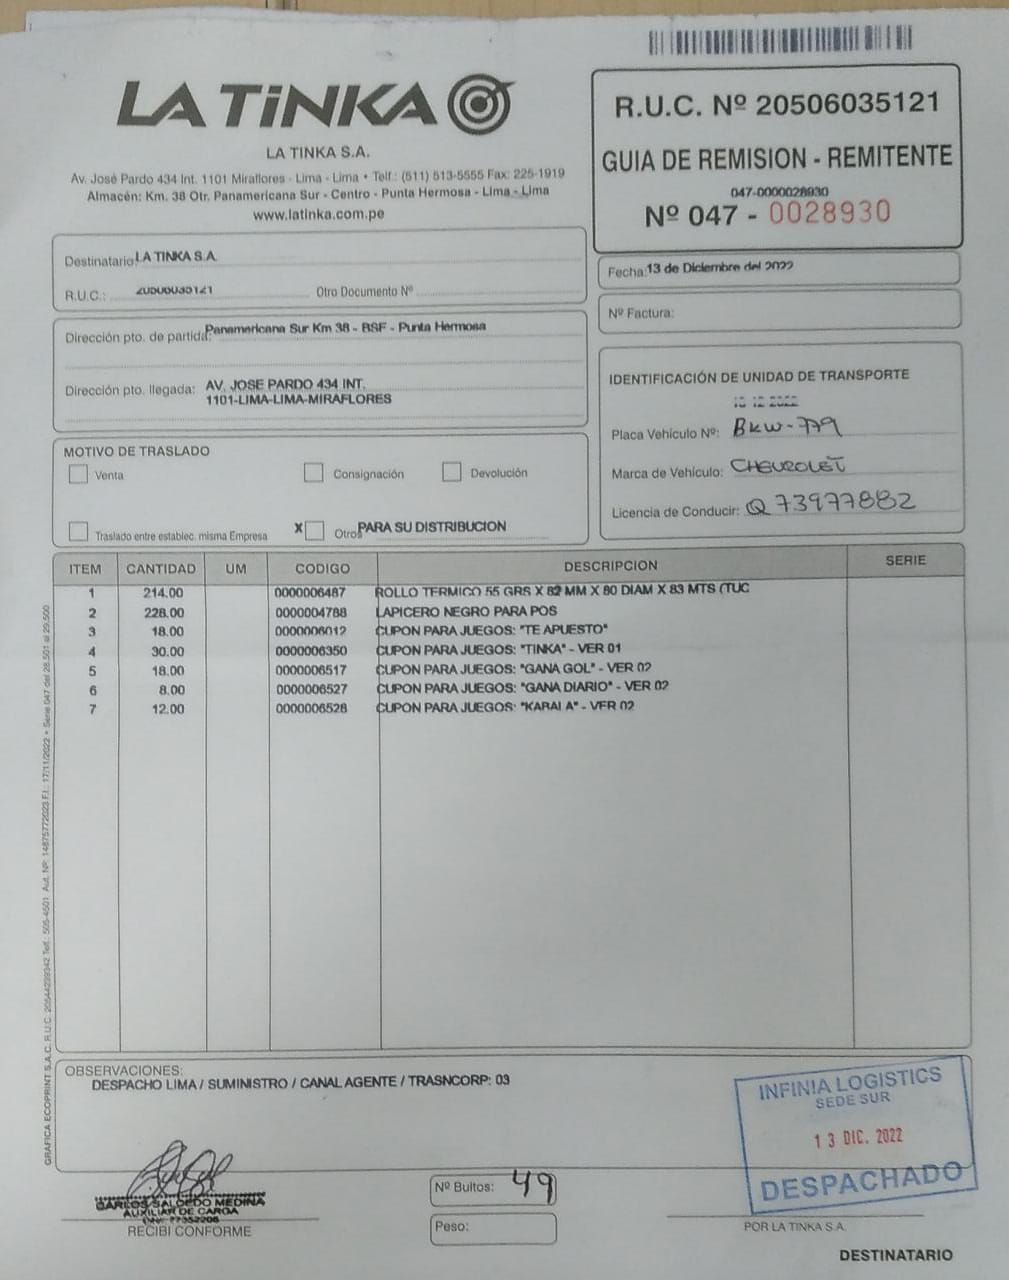 LA TiNKA
LA TINKA S.A.
Av. José Pardo 434 Int. 1101 Miraflores - Lima - Lima • Telf.: (511) 513-5555 Fax: 225-1919
Almacén: Km. 38 Otr. Panamericana Sur - Centro - Punta Hermosa - Lima - Lima
www.latinka.com.pe
R.U.C. Nº 20506035121
GUIA DE REMISION - REMITENTE
047-0000028930
Nº 047 - 0028930
Destinatario LA TINKA S.A.
R.U.C.: 20506035121 Otro Documento Nº
Fecha: 13 de Diciembre del 2022
Nº Factura:
Dirección pto. de partida: Panamericana Sur Km 38 - BSF - Punta Hermosa
Dirección pto. llegada: AV. JOSE PARDO 434 INT.
1101-LIMA-LIMA-MIRAFLORES
IDENTIFICACIÓN DE UNIDAD DE TRANSPORTE
Placa Vehículo Nº: BKW-779
Marca de Vehículo: CHEVROLET
Licencia de Conducir: Q 73977882
MOTIVO DE TRASLADO
Venta Consignación Devolución
Traslado entre establec. misma Empresa X Otros PARA SU DISTRIBUCION
ITEM CANTIDAD UM CODIGO DESCRIPCION SERIE
1 214.00 0000006487 ROLLO TERMICO 55 GRS X 82 MM X 80 DIAM X 83 MTS (TUC
2 228.00 0000004788 LAPICERO NEGRO PARA POS
3 18.00 0000006012 CUPON PARA JUEGOS: "TE APUESTO"
4 30.00 0000006350 CUPON PARA JUEGOS: "TINKA" - VER 01
5 18.00 0000006517 CUPON PARA JUEGOS: "GANA GOL" - VER 02
6 8.00 0000006527 CUPON PARA JUEGOS: "GANA DIARIO" - VER 02
7 12.00 0000006528 CUPON PARA JUEGOS: "KABALA" - VER 02
OBSERVACIONES:
DESPACHO LIMA / SUMINISTRO / CANAL AGENTE / TRASNCORP: 03
INFINIA LOGISTICS
SEDE SUR
13 DIC. 2022
DESPACHADO
CARLOS SALCEDO MEDINA
AUXILIAR DE CARGA
RECIBI CONFORME
Nº Bultos: 49
Peso:
POR LA TINKA S.A.
DESTINATARIO